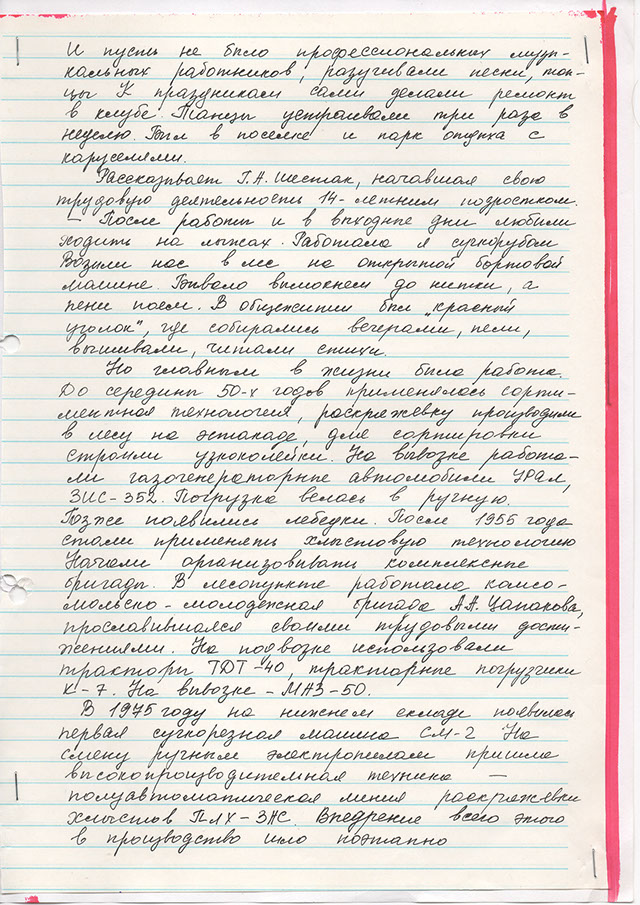 И пусть не было профессиональных музы-
кальных работников, разучивали песни, тан-
цы К праздникам сами делали ремонт
в клубе. Танцы устраивали три раза в
неделю. Был в поселке и парк отдыха с
каруселями.
Рассказывает Г.А. Шестак, начавшая свою
трудовую деятельность 14-летним подростком.
– После работы и в выходные дни любили
ходить на лыжах. Работала я сучкорубом
Возили нас в лес на открытой бортовой
машине. Бывало вымокнем до нитки, а
песни поем. В общежитии был „красный
уголок", где собирались вечерами, пели,
вышивали, читали стихи.
Но главным в жизни была работа.
До середины 50-х годов применялась сорти-
ментная технология, раскряжевку производили
в лесу на эстакаде, для сортировки
строили узкоколейки. На вывозке работа-
ли газогенераторные автомобили УРАЛ,
ЗИС-352. Погрузка велась в ручную.
Позже появились лебедки. После 1955 года
стали применять хлыстовую технологию
Начали организовывать комплексные
бригады. В лесопункте работала комсо-
мольско-молодежная бригада А.А. Цапакова,
прославившаяся своими трудовыми дости-
жениями. На подвозке использовали
тракторы ТДТ-40, тракторные погрузчики
К-7. На вывозке - МАЗ-50.
В 1975 году на нижнем складе появилась
первая сучкорезная машина СМ-2 На
смену ручным электропилам пришла
высокопроизводительная техника —
полуавтоматическая линия раскряжевки
хлыстов ПЛХ-3АС. Внедрение всего этого
в производство шло поэтапно